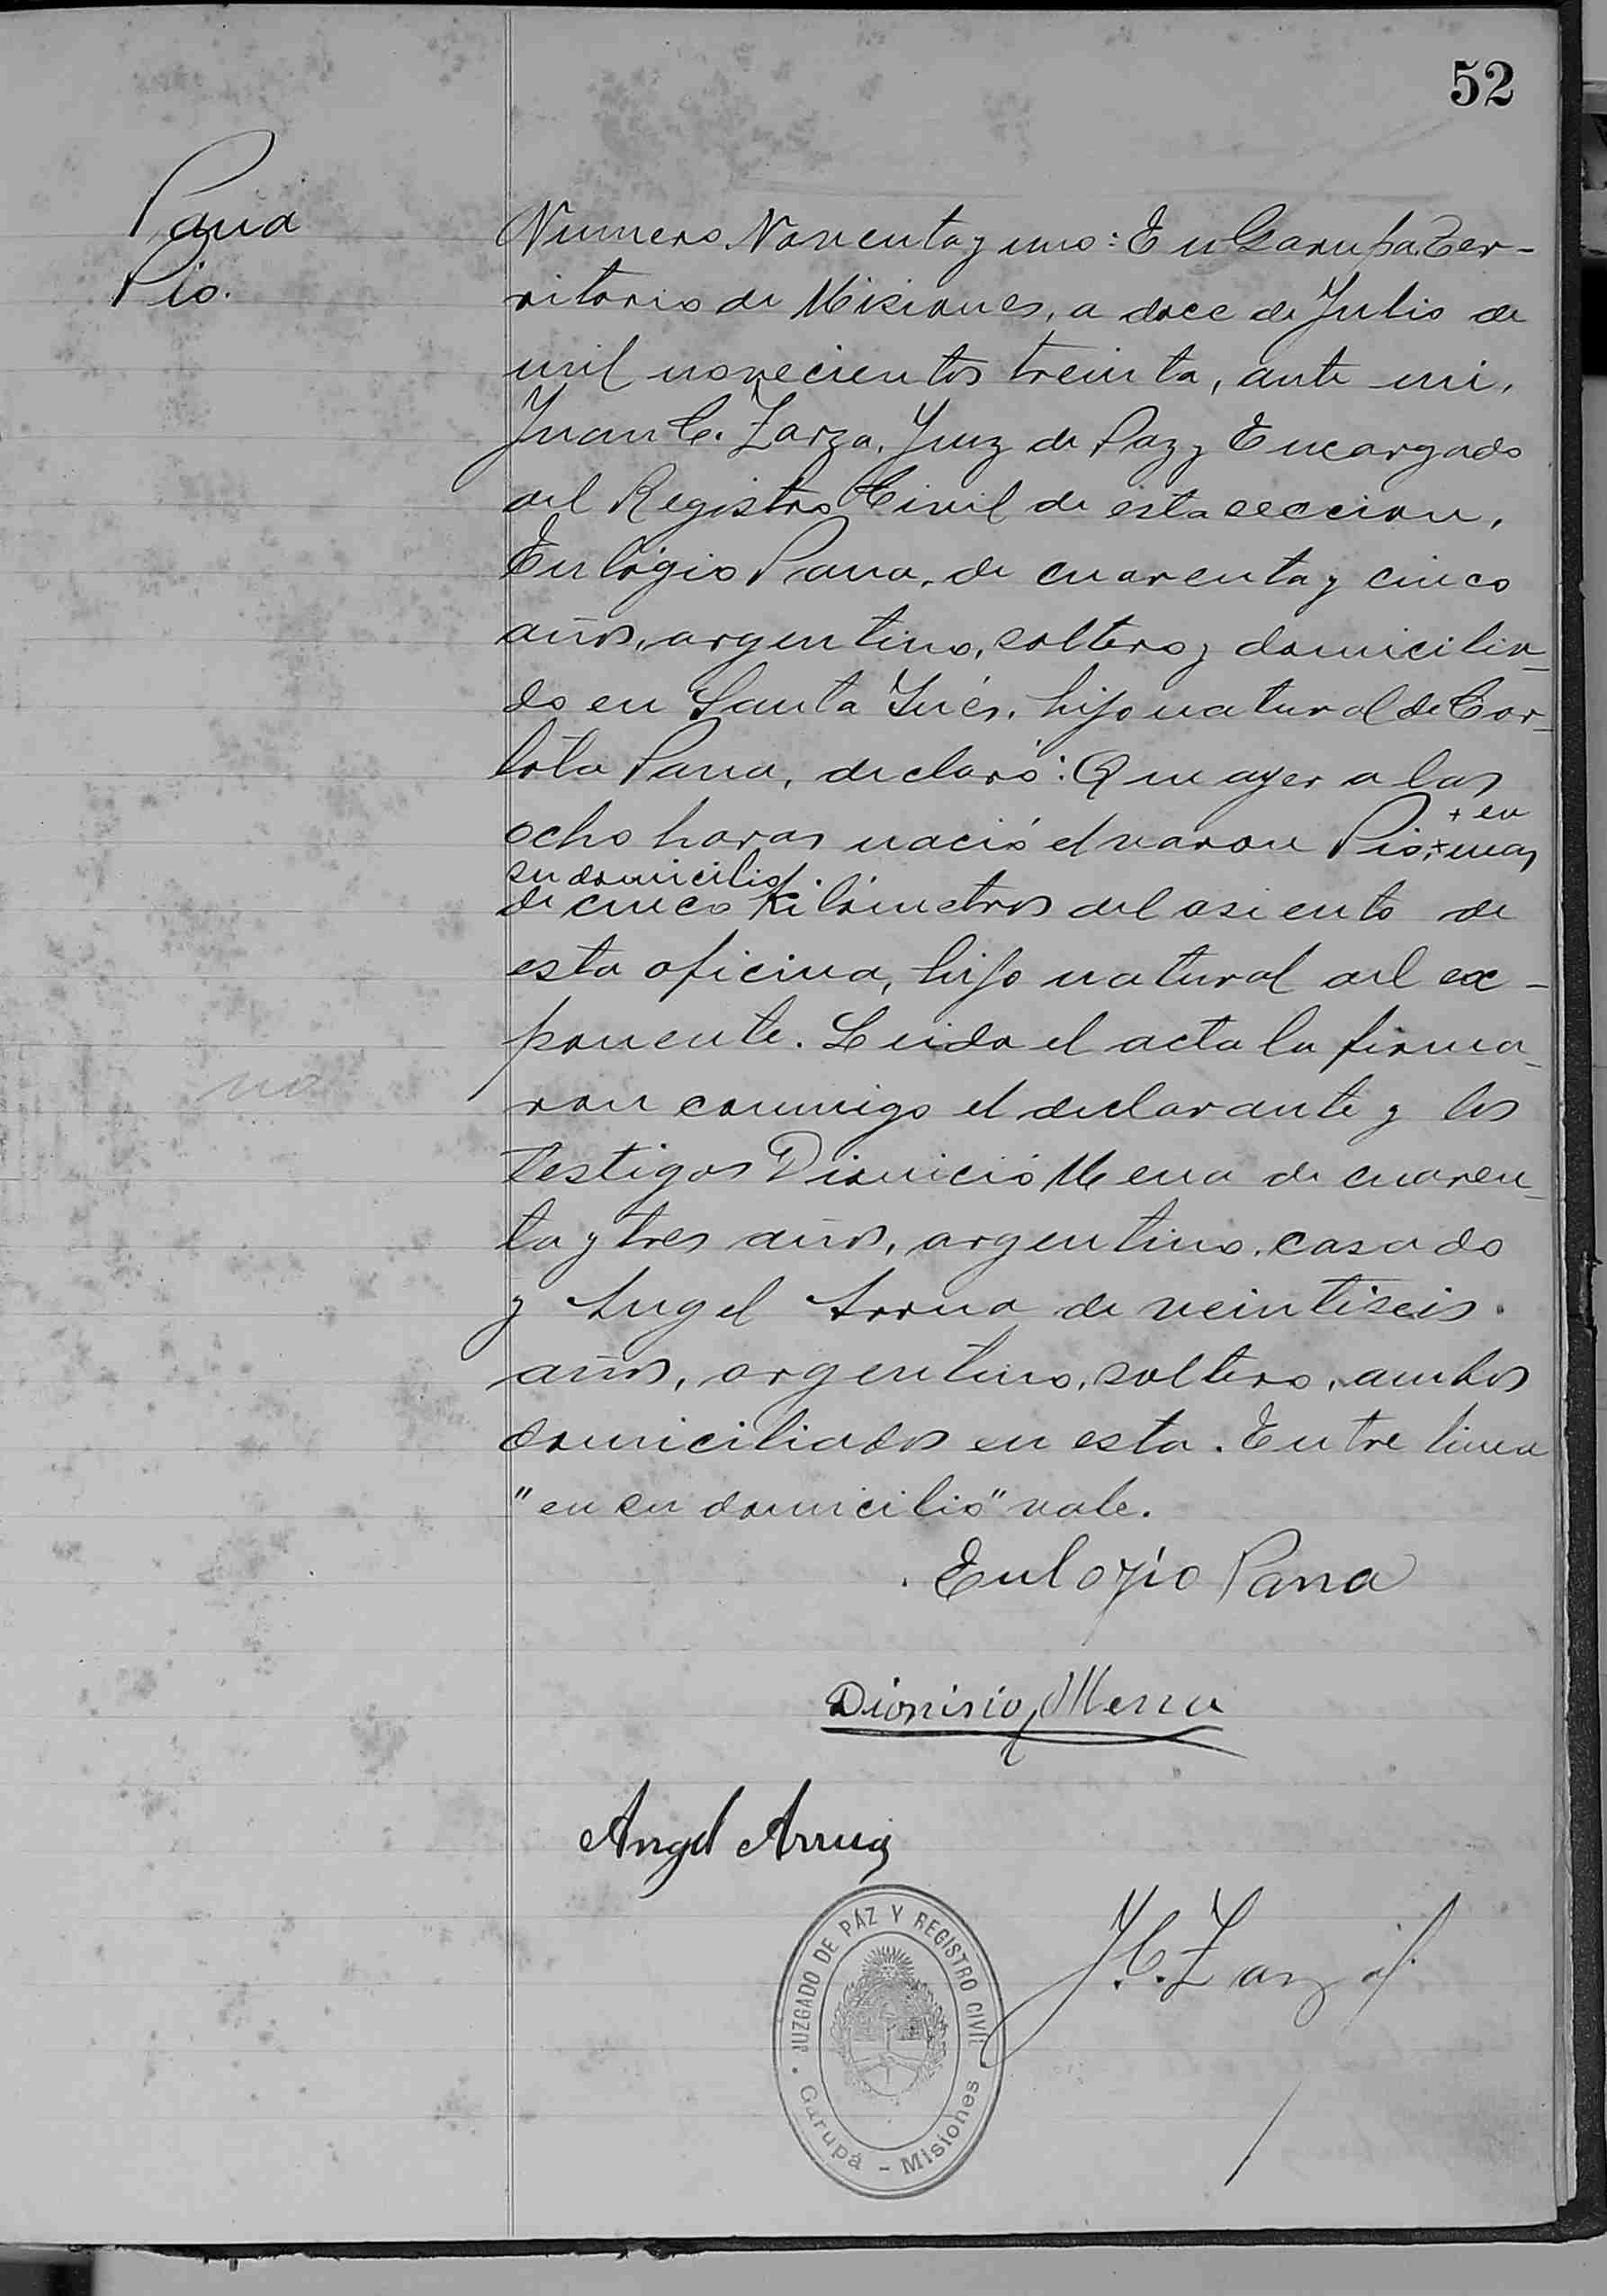 52
Pana
Pio.
Numero Noventa y uno: En Garupa, Ter-
ritorio de Misiones, a doce de Julio de
mil novecientos treinta, ante mi,
Juan C. Zarza, Juez de Paz y Encargado
del Registro Civil de esta seccion,
Eulógio Pana, de cuarenta y cinco
años, argentino, soltero y domicilia-
do en Santa Inés, hijo natural de Car-
lota Pana, declaró: Que ayer a las
ocho horas nació el varon Pio, + mas
+ en
su domicilio
de cinco Kilómetros del asiento de
esta oficina, hijo natural del ex-
ponente. Leida el acta la firma-
ron conmigo el declarante y los
testigos Dionicio Mena de cuaren-
ta y tres años, argentino, casado
y Angel Arrua de veintiseis
años, argentino, soltero, ambos
domiciliados en esta. Entre linea
"en su domicilio" vale.
Eulogio Pana
Dionisio Mena
Angel Arrua
J. C. Zarza
JUZGADO DE PÁZ Y REGISTRO CIVIL
Garupá - Misiones